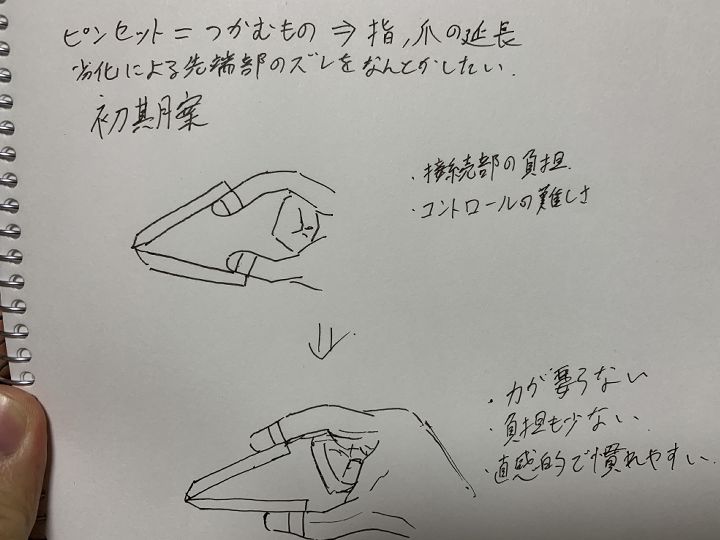 ピンセット = つかむもの ⇒ 指,爪の延長
劣化による先端部のズレをなんとかしたい.
初期案
・接続部の負担
・コントロールの難しさ
・力が要らない
・負担も少ない.
・直感的で慣れやすい.